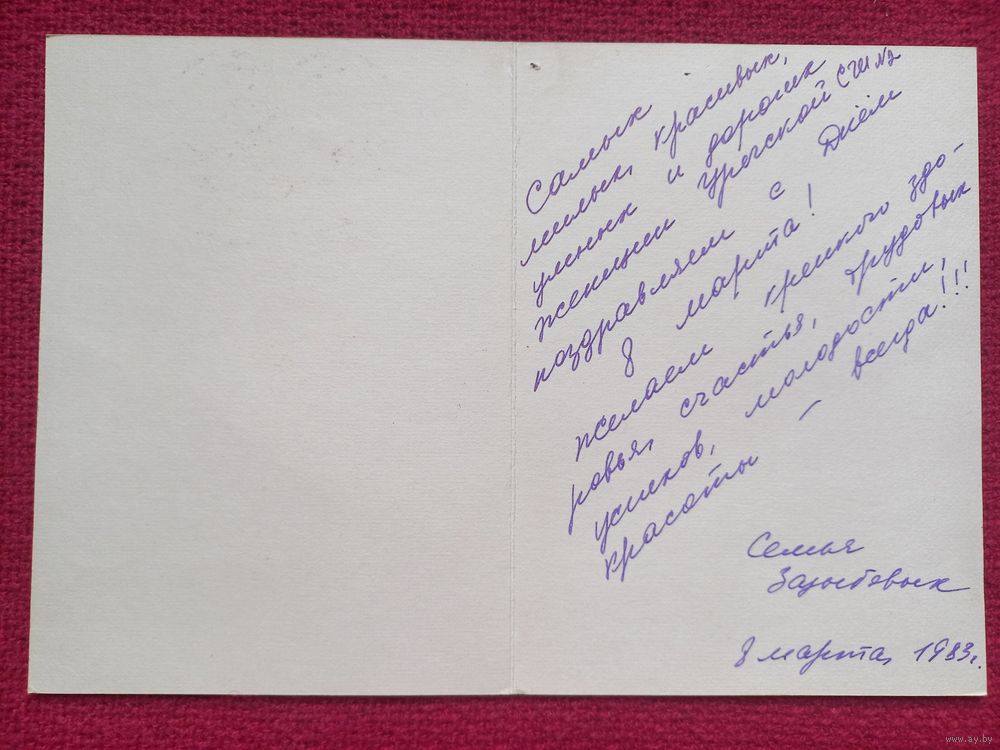 Самых
милых, красивых,
умных и дорогих
женщин Уречской СШ №2
поздравляем с Днём
8 марта!
Желаем крепкого здо-
ровья, счастья, трудовых
успехов, молодости,
красоты — всегда!!!
Семья
8 марта 1983г.
www.ay.by